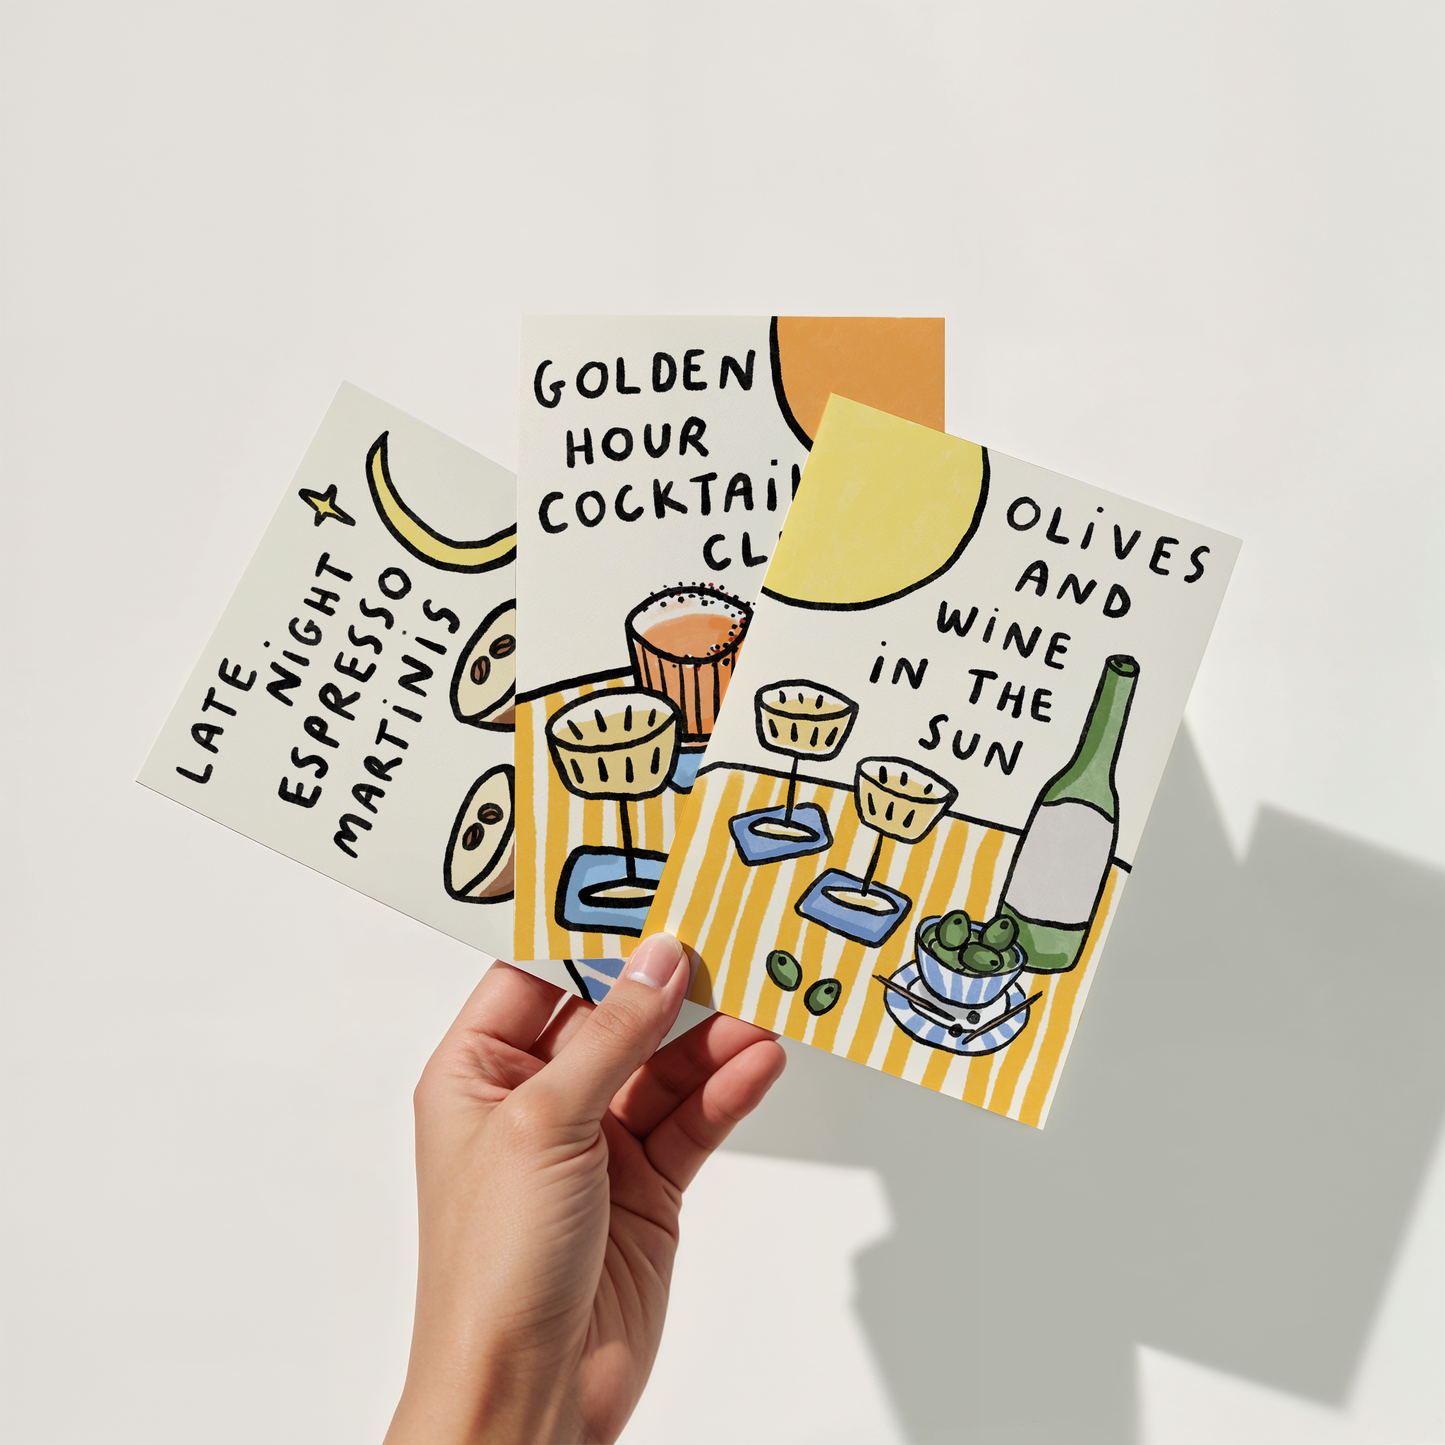 LATE
NiGHT
ESPRESSO
MARTiNiS
GOLDEN
HOUR
OLiVES
AND
WiNE
iN THE
SUN